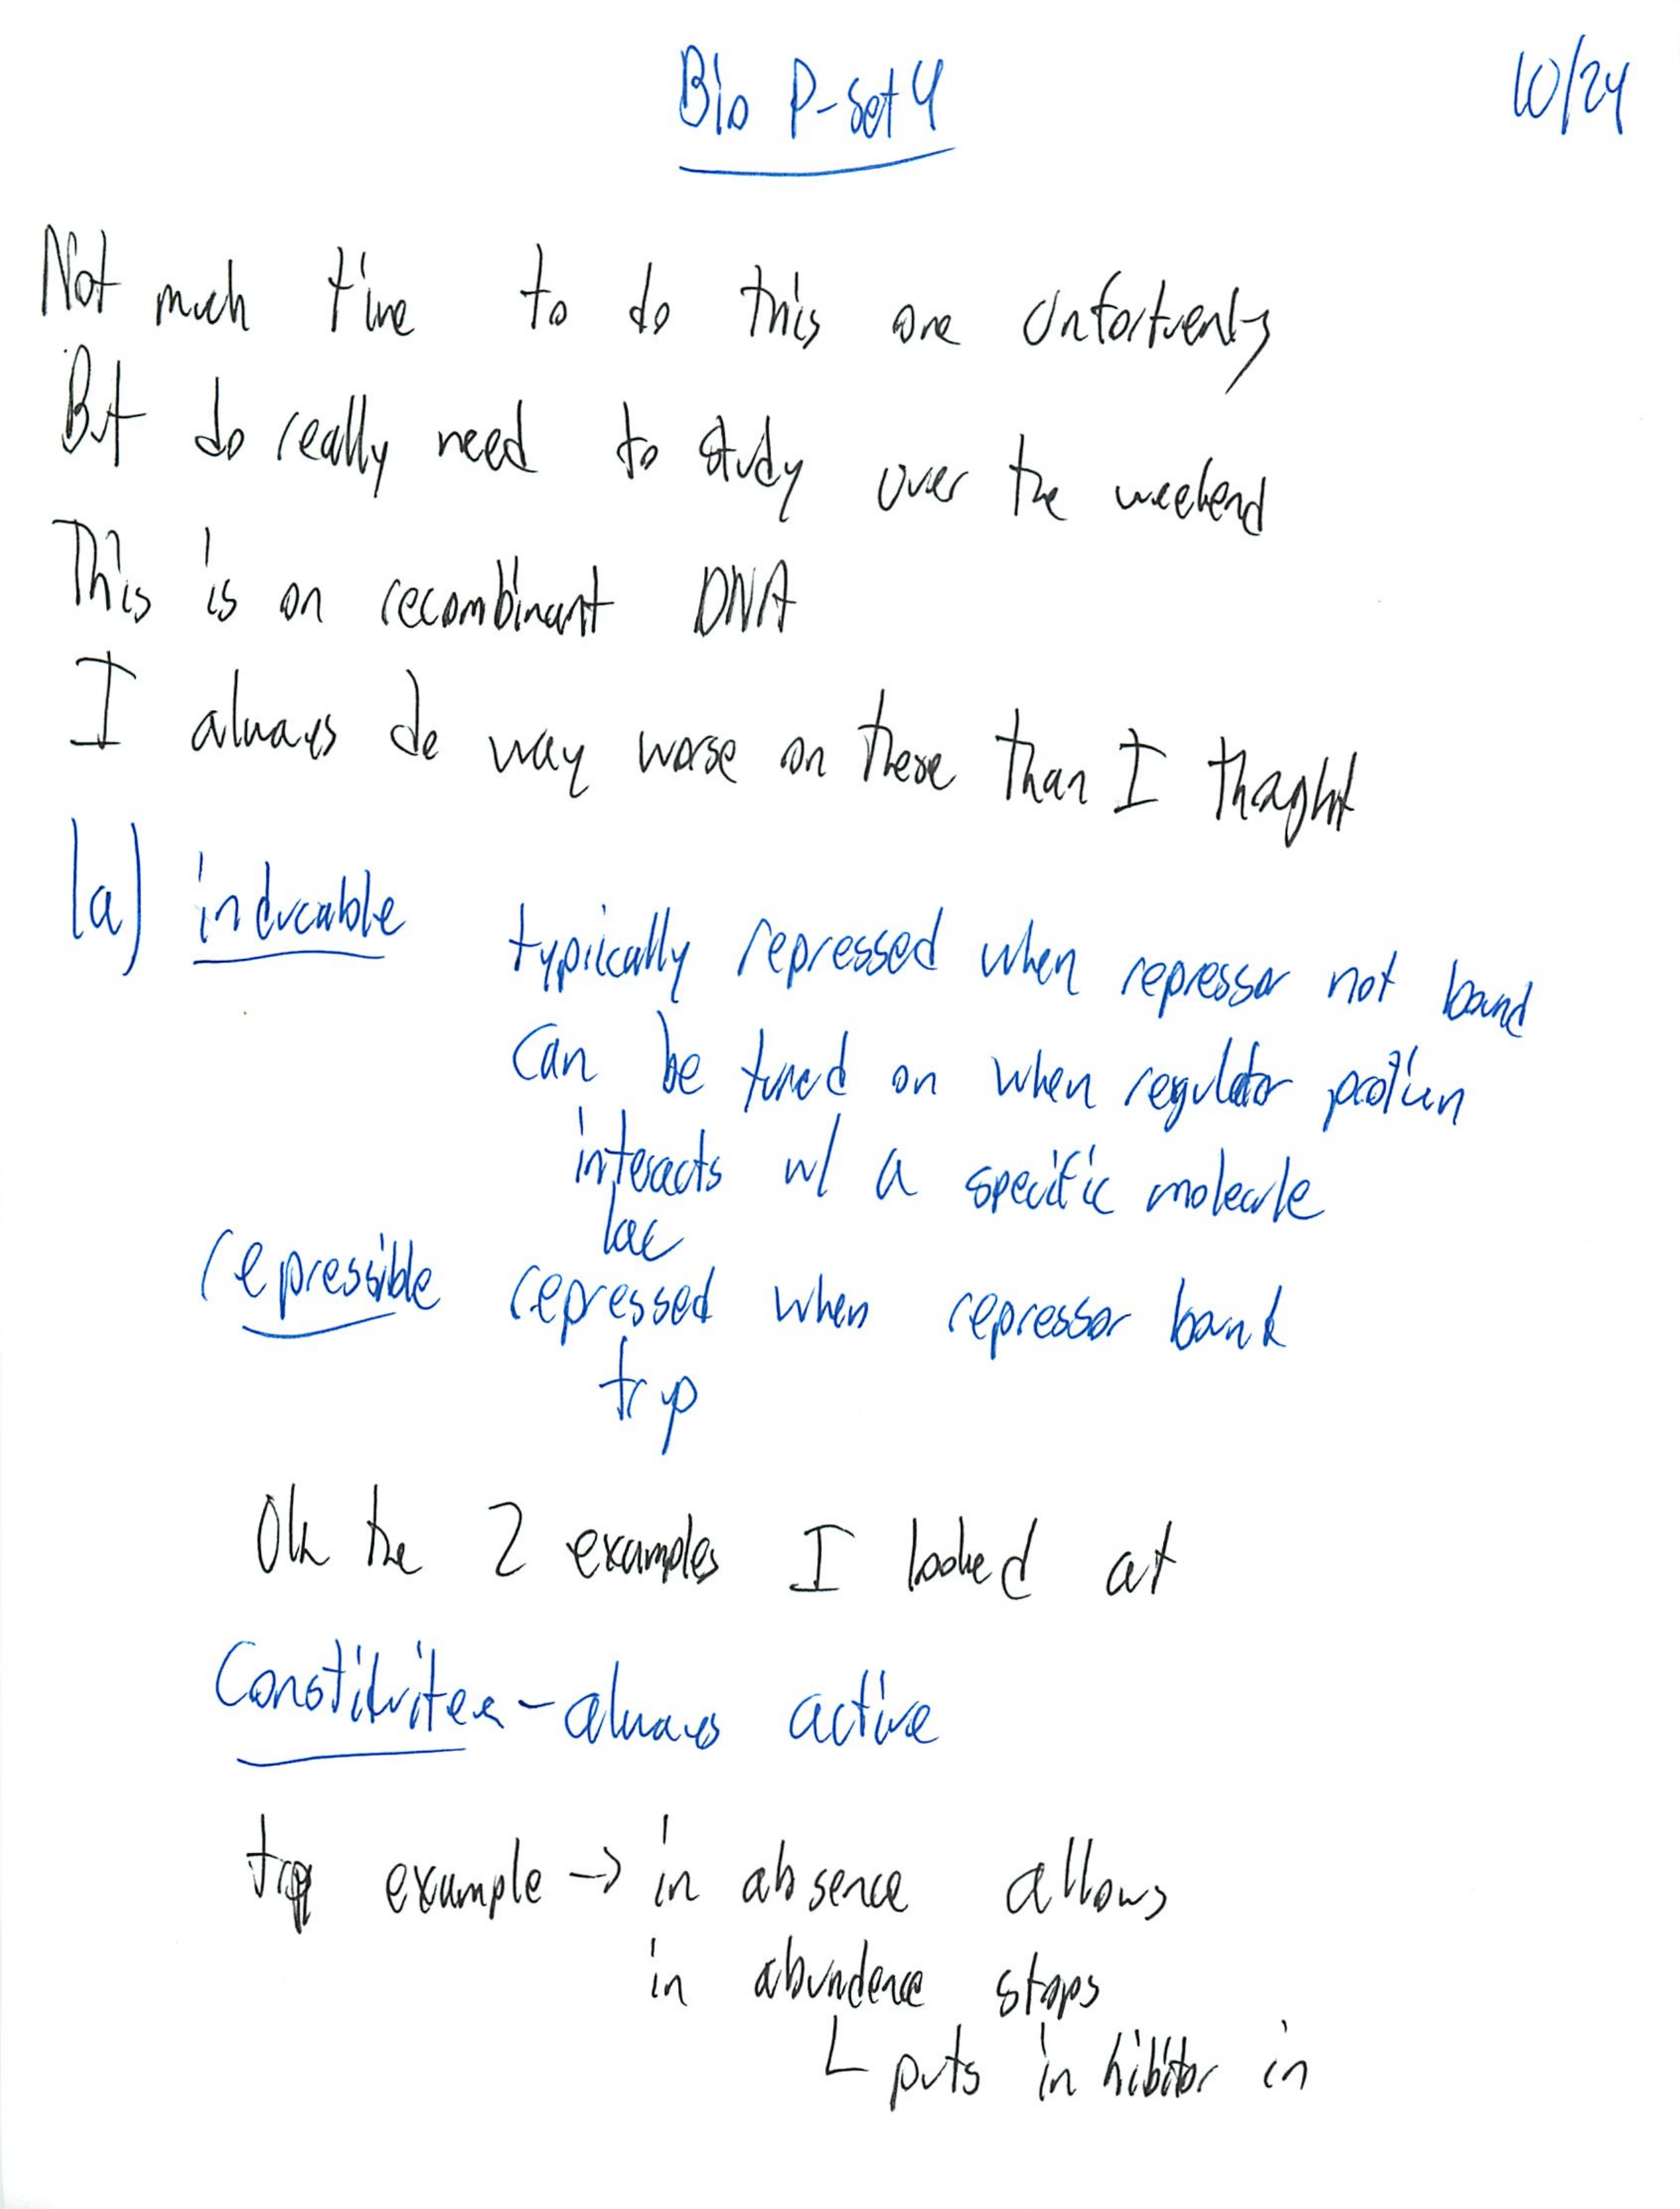 Bio P-Set 4
10/24
Not much time to do this one unfortuenly
But do really need to study over the weekend
This is on recombinant DNA
I always do way worse on these than I thought
1a) inducable typically repressed when repressor not bound
Can be turned on when regulator protien
interacts w/ a specific molecule
lac
repressible repressed when repressor bound
trp
Oh the 2 examples I looked at
- always active
trp example → in absence allows
in abundence stops
puts inhibitor in